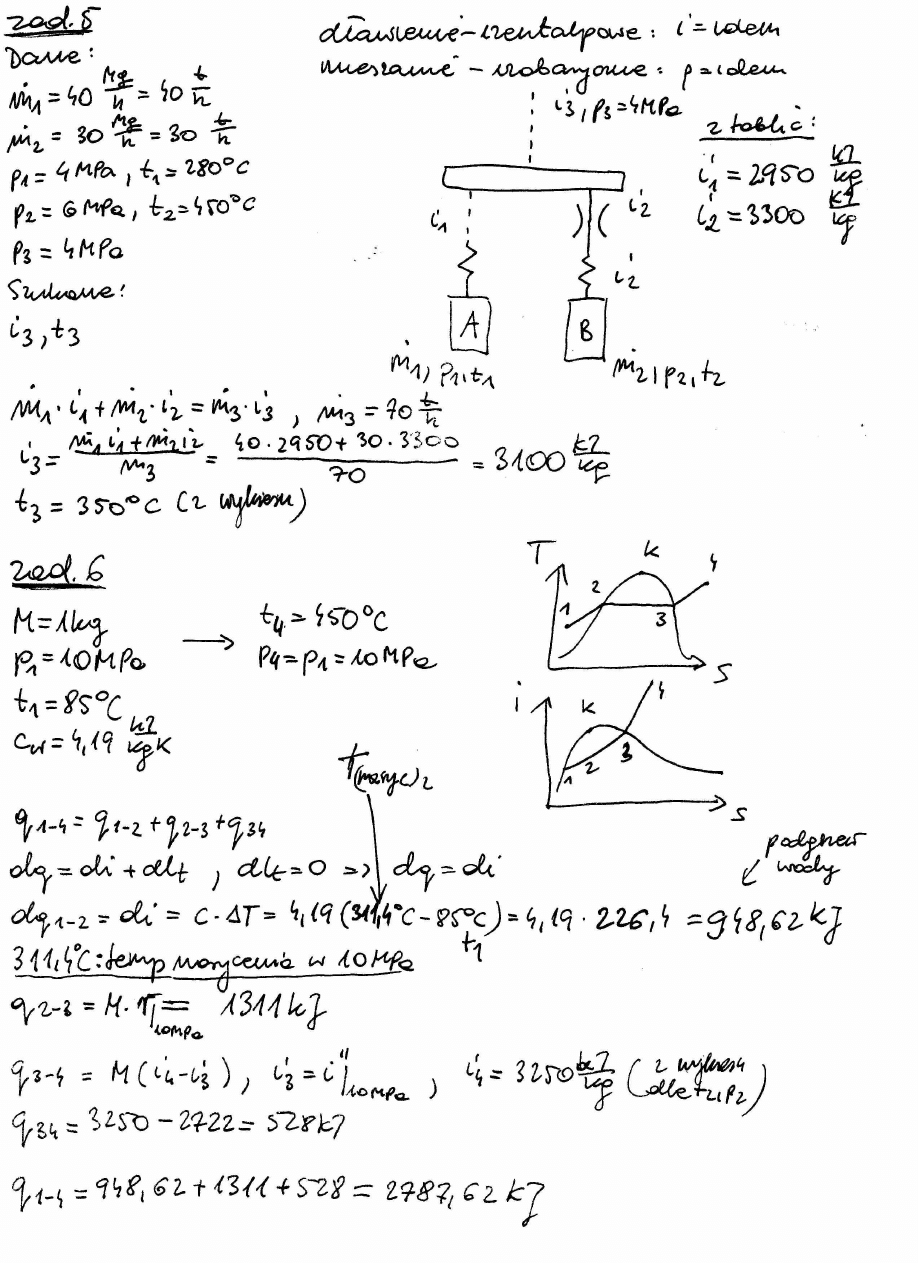 zad. 5
Dane:
ṁ₁ = 40 Mg/h = 40 t/h
ṁ₂ = 30 Mg/h = 30 t/h
p₁ = 4 MPa, t₁ = 280°C
p₂ = 6 MPa, t₂ = 450°C
p₃ = 4 MPa
Szukane:
i₃, t₃
dławienie - izentalpowe: i = idem
mieszanie - izobaryczne: p = idem
i₃, p₃ = 4 MPa
i₁
i₂
i₂
A
B
ṁ₁, p₁, t₁
ṁ₂, p₂, t₂
z tablic:
i₁ = 2950 kJ/kg
i₂ = 3300 kJ/kg
ṁ₁·i₁ + ṁ₂·i₂ = ṁ₃·i₃, ṁ₃ = 70 t/h
i₃ = (ṁ₁i₁ + ṁ₂i₂)/ṁ₃ = (40·2950 + 30·3300)/70 = 3100 kJ/kg
t₃ = 350°C (z wykresu)
zad. 6
M = 1kg
p₁ = 10 MPa
t₁ = 85°C
c_w = 4,19 kJ/kgK
→ t₄ = 450°C
p₄ = p₁ = 10 MPa
T K 4
2
1 3
S
i K 4
1 2 3
S
T(nasyc)₂
q₁₋₄ = q₁₋₂ + q₂₋₃ + q₃₄
dq = di + dlt, dlt = 0 => dq = di
podgrzew wody
dq₁₋₂ = di = c·ΔT = 4,19 (311,4°C - 85°C) = 4,19 · 226,4 = 948,62 kJ
t₁
311,4°C: temp nasycenia w 10 MPa
q₂₋₃ = M·r|10MPa = 1311 kJ
q₃₋₄ = M(i₄ - i₃), i₃ = i"|10MPa, i₄ = 3250 kJ/kg (z wykresu dla t₂, p₂)
q₃₄ = 3250 - 2722 = 528 kJ
q₁₋₄ = 948,62 + 1311 + 528 = 2787,62 kJ